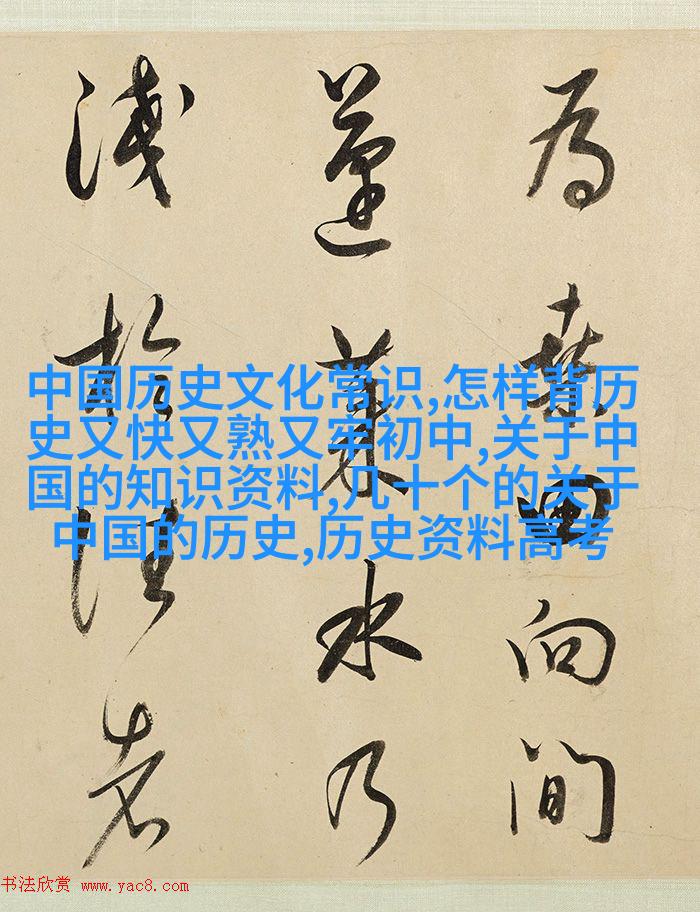 為桑田向間
蓬萊水乃
淺於往者
中国历史文化常识,怎样背历
史又快又熟又牢初中,关于中
国的知识资料,几十个的关于
中国的历史,历史资料高考
书法欣赏 www.yac8.com